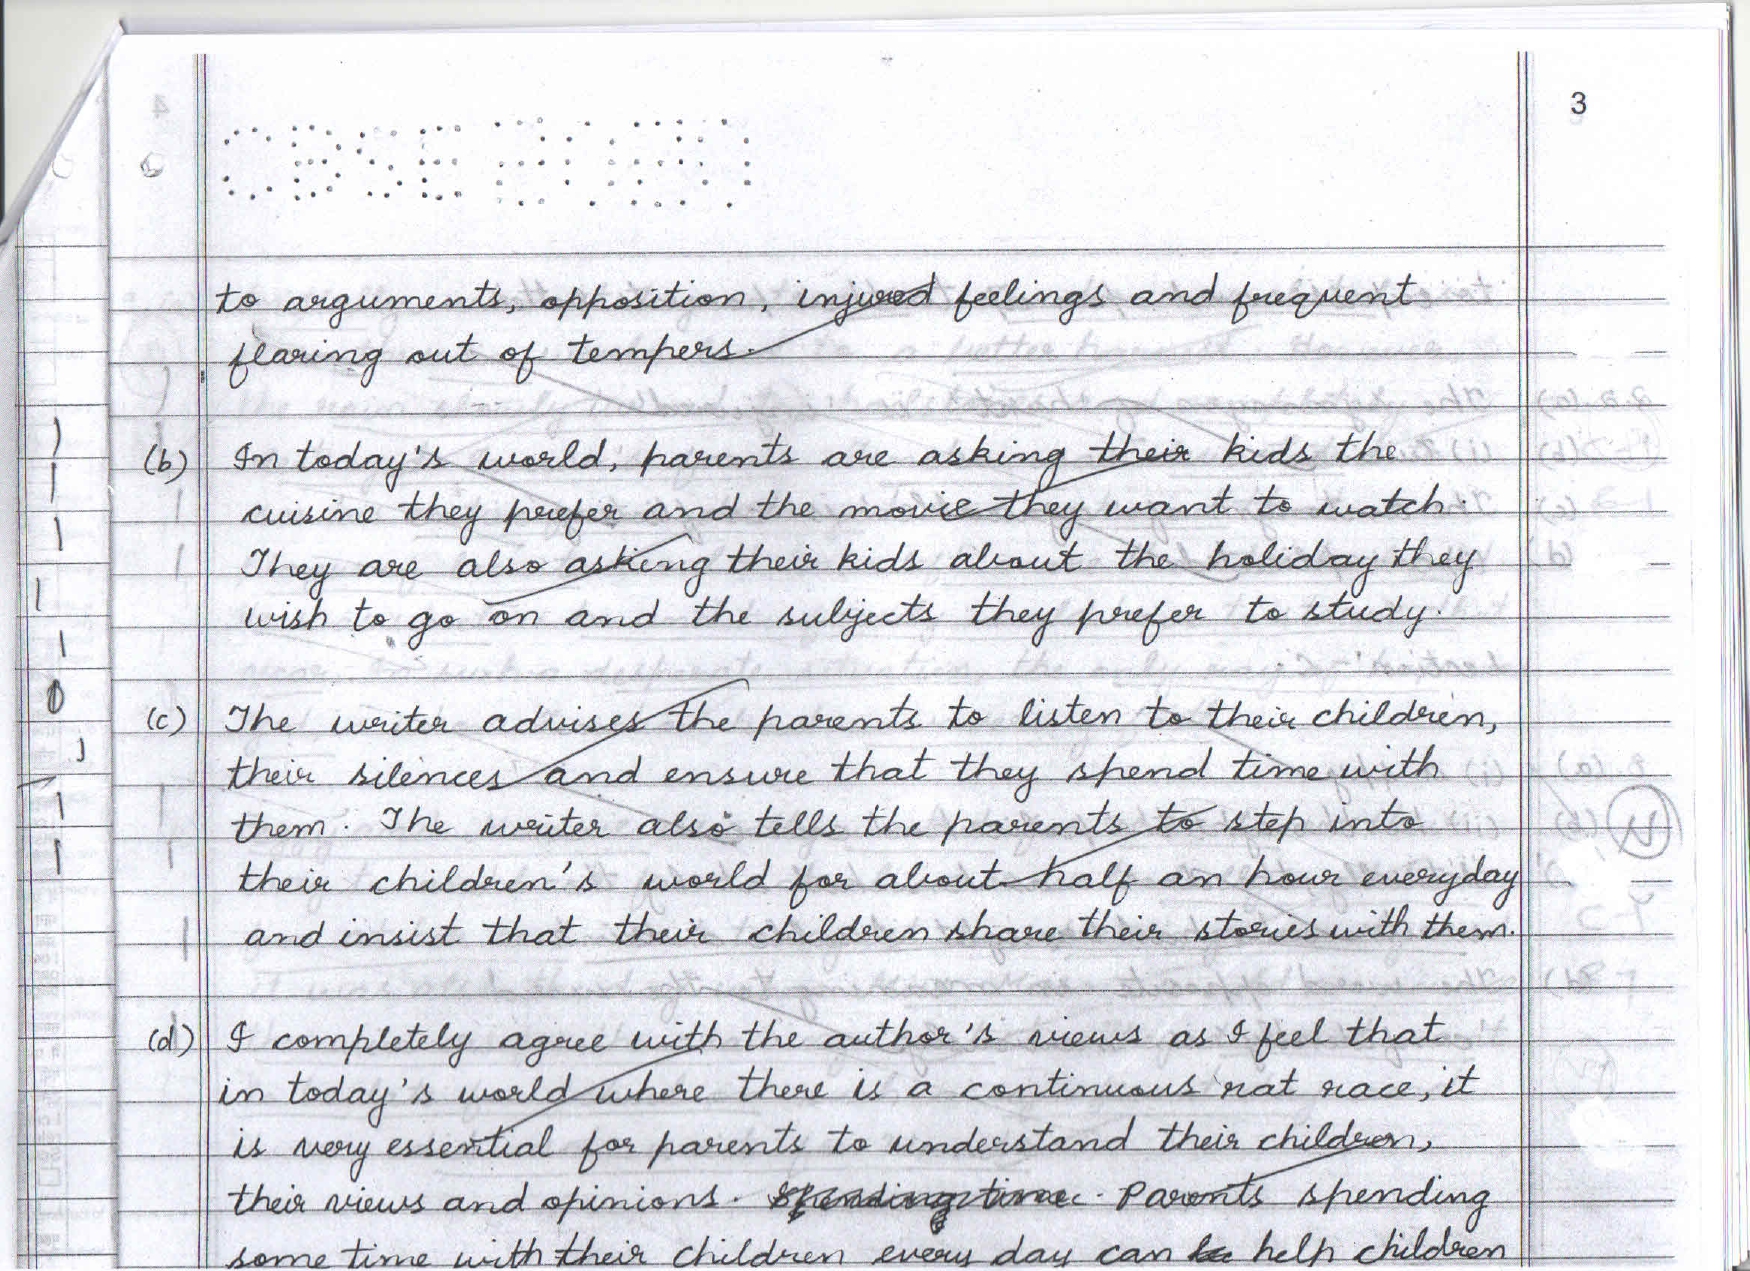 3
CBSE
to arguments, opposition, injured feelings and frequent
flaring out of tempers.
(b) In today's world, parents are asking their kids the
cuisine they prefer and the movie they want to watch.
They are also asking their kids about the holiday they
wish to go on and the subjects they prefer to study.
(c) The writer advises the parents to listen to their children,
their silences and ensure that they spend time with
them. The writer also tells the parents to step into
their children's world for about half an hour everyday
and insist that their children share their stories with them.
(d) I completely agree with the author's views as I feel that
in today's world where there is a continuous rat race, it
is very essential for parents to understand their children,
their views and opinions. spending time. Parents spending
some time with their children every day can help children